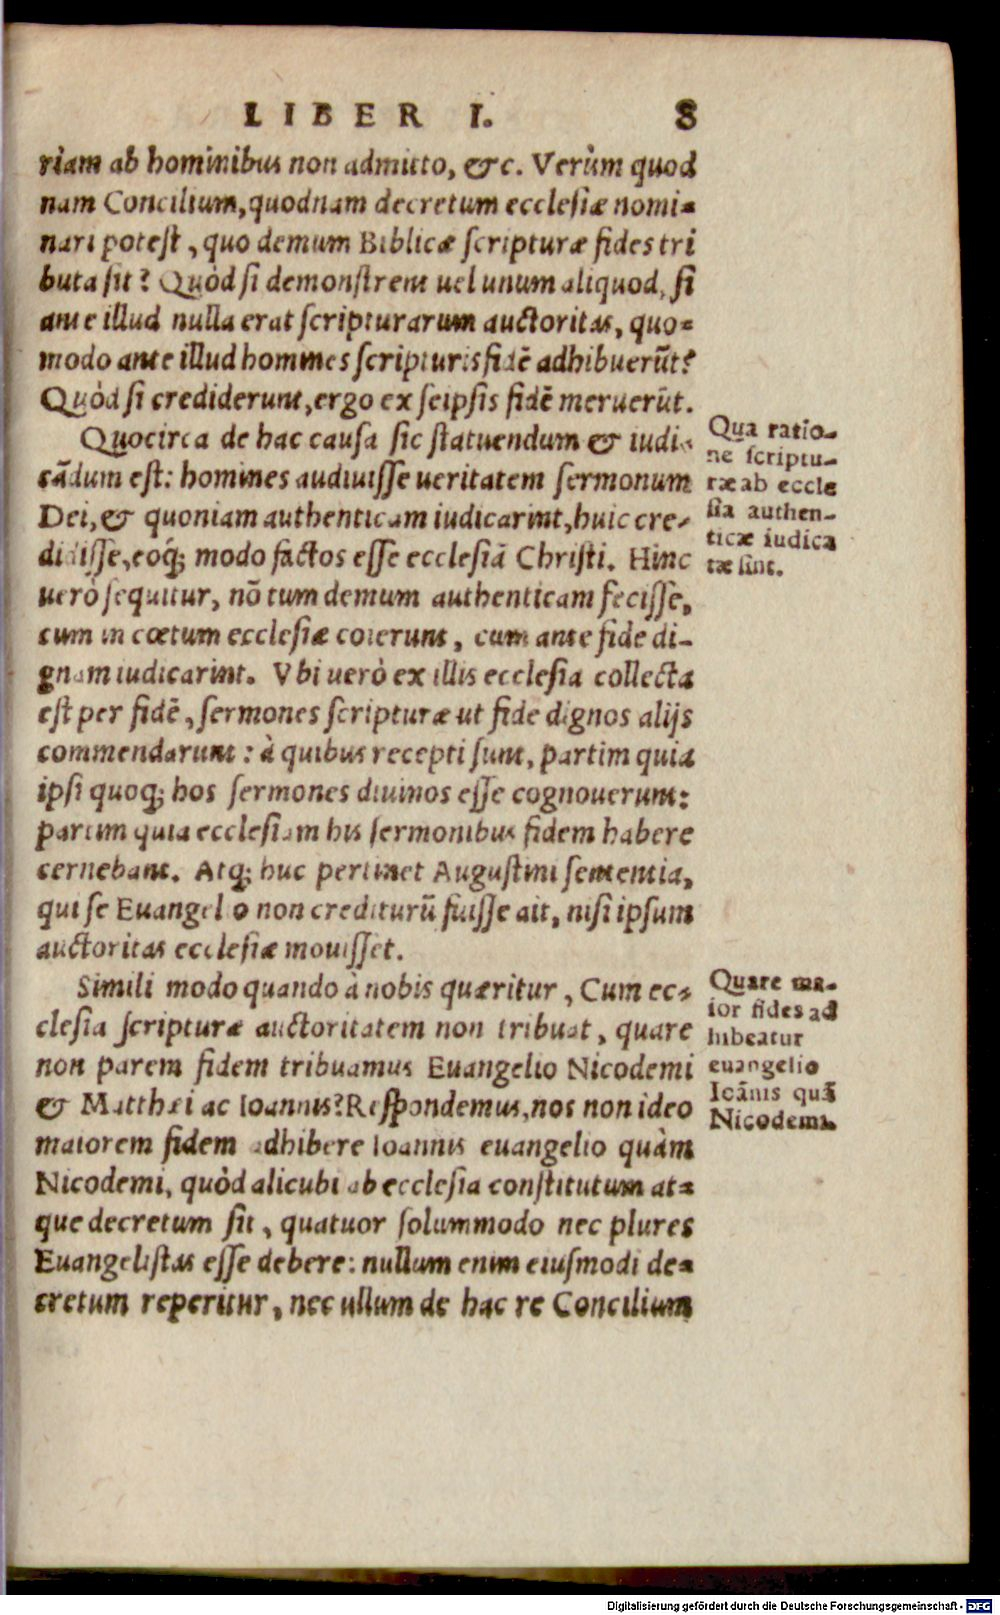 LIBER I. 8
riam ab hominibus non admitto, &c. Verùm quod
nam Concilium, quodnam decretum ecclesiæ nomi-
nari potest, quo demum Biblicæ scripturæ fides tri
buta sit? Quòd si demonstrent uel unum aliquod, si
ante illud nulla erat scripturarum auctoritas, quo-
modo ante illud homines scripturis fidẽ adhibuerũt?
Quòd si crediderunt, ergo ex seipsis fidẽ meruerũt.
Quocirca de hac causa sic statuendum & iudi-
cãdum est: homines audiuisse ueritatem sermonum
Dei, & quoniam authenticam iudicarint, huic cre-
didisse, eoq́; modo factos esse ecclesiã Christi. Hinc
uerò sequitur, nõ tum demum authenticam fecisse,
cum in cœtum ecclesiæ coierunt, cum ante fide di-
gnam iudicarint. Vbi uerò ex illis ecclesia collecta
est per fidẽ, sermones scripturæ ut fide dignos alijs
commendarunt: à quibus recepti sunt, partim quia
ipsi quoq; hos sermones diuinos esse cognouerunt:
partim quia ecclesiam his sermonibus fidem habere
cernebant. Atq; huc pertinet Augustini sententia,
qui se Euangelio non crediturũ fuisse ait, nisi ipsum
auctoritas ecclesiæ mouisset.
Simili modo quando à nobis quæritur, Cum ec-
clesia scripturæ auctoritatem non tribuat, quare
non parem fidem tribuamus Euangelio Nicodemi
& Matthæi ac Ioannis? Respondemus, nos non ideo
maiorem fidem adhibere Ioannis euangelio quàm
Nicodemi, quòd alicubi ab ecclesia constitutum at-
que decretum sit, quatuor solummodo nec plures
Euangelistas esse debere: nullum enim eiusmodi de-
cretum reperitur, nec ullum de hac re Concilium
Qua ratio-
ne scriptu-
ræ ab eccle
sia authen-
ticæ iudica
tæ sint.
Quare ma-
ior fides ad
hibeatur
euangelio
Ioãnis quã
Nicodemi.
Digitalisierung gefördert durch die Deutsche Forschungsgemeinschaft - DFG